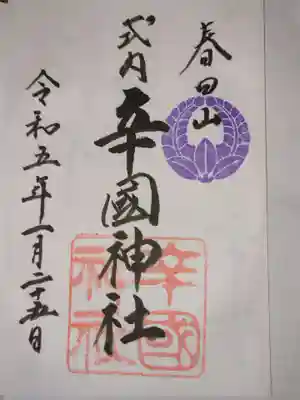 春日山
式内
辛國神社
辛國
神社
令和五年一月二十五日